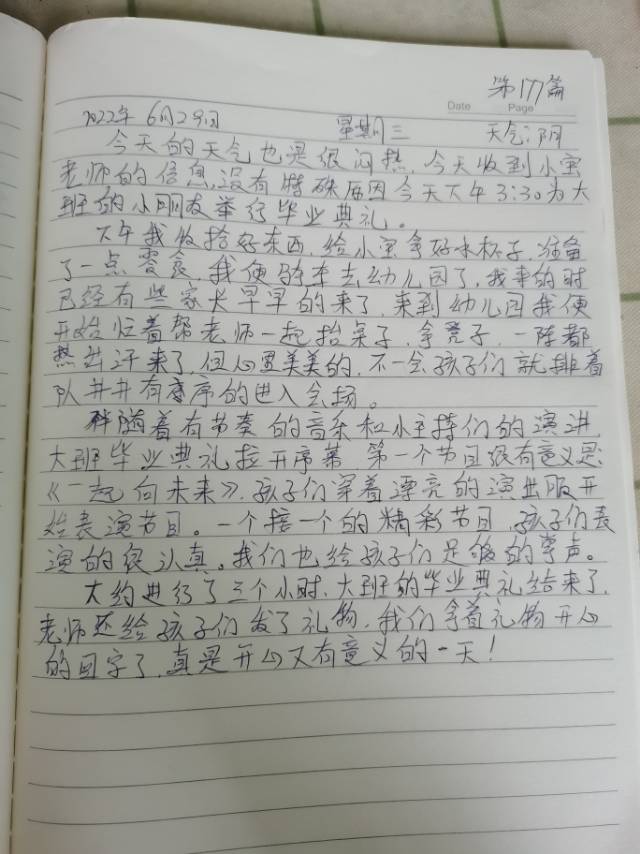 第177篇
Date Page
2022年 6月29日 星期三 天气:阴
今天的天气也是很闷热,今天收到小宝
老师的信息,没有特殊原因今天下午3:30为大
班的小朋友举行毕业典礼。
下午我收拾好东西,给小宝拿好水杯子,准备
了一点零食,我便骑车去幼儿园了,我来的时
已经有些家长早早的来了,来到幼儿园我便
开始忙着帮老师一起抬桌子,拿凳子,一阵都
热出汗来了,但心里美美的,不一会孩子们就排着
队井井有序的进入会场。
伴随着有节奏的音乐和小主持们的演讲,
大班毕业典礼拉开序幕 第一个节目很有意义是:
《一起向未来》,孩子们穿着漂亮的演出服开
始表演节目。一个接一个的精彩节目,孩子们表
演的很认真。我们也给孩子们足够的掌声。
大约进行了三个小时,大班的毕业典礼结束了,
老师还给孩子们发了礼物,我们拿着礼物开心
的回家了,真是开心又有意义的一天!